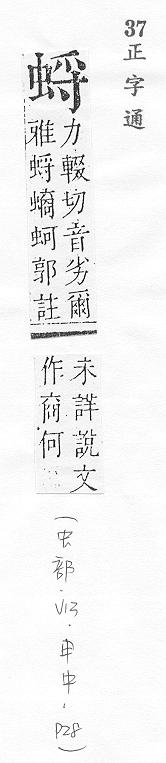 37 正字通
蛶
力輟切音劣爾
雅蛶螪蚵郭註
未詳說文
作商何
(虫部.V13.申中.P28)